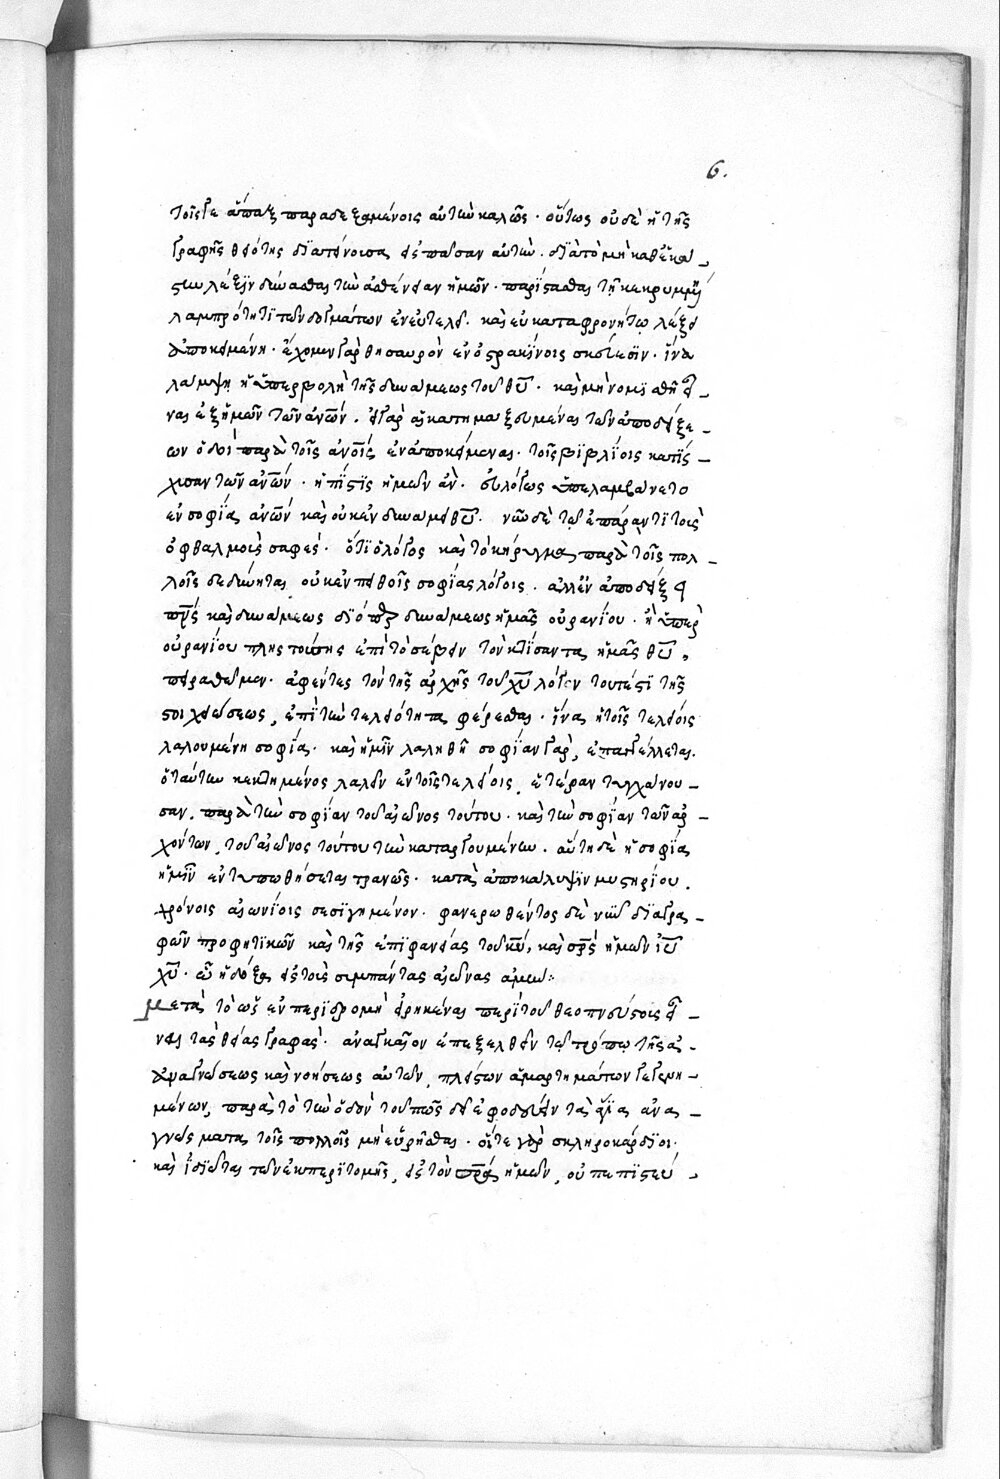 6.
τοῖς γε ἅπαξ παραδεξαμένοις αὐτὴν καλῶς · οὕτως οὐδὲ ἡ τῆς
γραφῆς θειότης διατείνουσα εἰς πᾶσαν αὐτὴν · διὰ τὸ μὴ καθ' ἑκά-
στην λέξιν δύνασθαι τὴν ἀσθένειαν ἡμῶν · παρίστασθαι τῇ κεκρυμμένῃ
λαμπρότητι τῶν δογμάτων ἐν εὐτελεῖ · καὶ εὐκαταφρονήτῳ λέξει
ἀποκειμένῃ · ἔχομεν γὰρ θησαυρὸν ἐν ὀστρακίνοις σκεύεσιν · ἵνα
λάμψῃ ἡ ὑπερβολὴ τῆς δυνάμεως τοῦ θυ · καὶ μὴ νομισθῇ εἶ-
ναι ἐξ ἡμῶν τῶν ἀνων · εἰ γὰρ αἱ κατημαξευμέναι τῶν ἀποδείξε-
ων ὁδοὶ παρὰ τοῖς ἀνοις ἐναποκείμεναι · τοῖς βιβλίοις κατίσ-
χυσαν τῶν ἀνων · ἡ πίστις ἡμῶν ἂν · εὐλόγως ὑπελαμβάνετο
ἐν σοφίᾳ ἀνων καὶ οὐκ ἐν δυνάμει θυ · νῦν δὲ τῷ ἐπάραντι τοὺς
ὀφθαλμοὺς σαφές · ὅτι ὁ λόγος καὶ τὸ κήρυγμα παρὰ τοῖς πολ-
λοῖς δεδύνηται οὐκ ἐν πειθοῖς σοφίας λόγοις · ἀλλ' ἐν ἀποδείξει
πνς καὶ δυνάμεως διόπερ δυνάμεως ἡμᾶς οὐρανίου · ἢ ὑπερ
οὐρανίου πληττούσης ἐπὶ τὸ σέβειν τὸν κτίσαντα ἡμᾶς θν ,
πειραθῶμεν · ἀφέντες τὸν τῆς ἀρχῆς τοῦ χυ λόγον τουτέστι τῆς
στοιχειώσεως , ἐπὶ τὴν τελειότητα φέρεσθαι · ἵνα ἡ τοῖς τελείοις
λαλουμένη σοφία · καὶ ἡμῖν λαληθῇ σοφίαν γὰρ , ἐπαγγέλλεται
ὁ ταύτην κεκτημένος λαλεῖν ἐν τοῖς τελείοις , ἑτέραν τυγχάνου-
σαν , παρὰ τὴν σοφίαν τοῦ αἰῶνος τούτου · καὶ τὴν σοφίαν τῶν ἀρ-
χόντων , τοῦ αἰῶνος τούτου τῶν καταργουμένων · αὕτη δὲ ἡ σοφία
ἡμῖν ἐντυπωθήσεται τρανῶς · κατὰ ἀποκάλυψιν μυστηρίου ,
χρόνοις αἰωνίοις σεσιγημένου · φανερωθέντος δὲ νῦν διὰ γρα-
φῶν προφητικῶν καὶ τῆς ἐπιφανείας τοῦ κυ , καὶ σρς ἡμῶν ιυ
χυ · ᾧ ἡ δόξα εἰς τοὺς σύμπαντας αἰῶνας ἀμήν :
Μετὰ τὸ ὡς ἐν περιδρομῇ εἰρηκέναι περὶ τοῦ θεοπνεύστους εἶ-
ναι τὰς θείας γραφάς · ἀναγκαῖον ἐπεξελθεῖν τῷ τρόπῳ τῆς ἀ-
ναγνώσεως καὶ νοήσεως αὐτῶν , πλείστων ἁμαρτημάτων γεγενη-
μένων , παρὰ τὸ τὴν ὁδὸν τοῦ πῶς δεῖ ἐφοδεύειν τὰ ἅγια ἀνα-
γνώσματα τοῖς πολλοῖς μὴ εὑρῆσθαι · οἵ τε γὰρ σκληροκάρδιοι ·
καὶ ἰδιῶται τῶν ἐκ περιτομῆς , εἰς τὸν σρα ἡμῶν , οὐ πεπιστεύ-